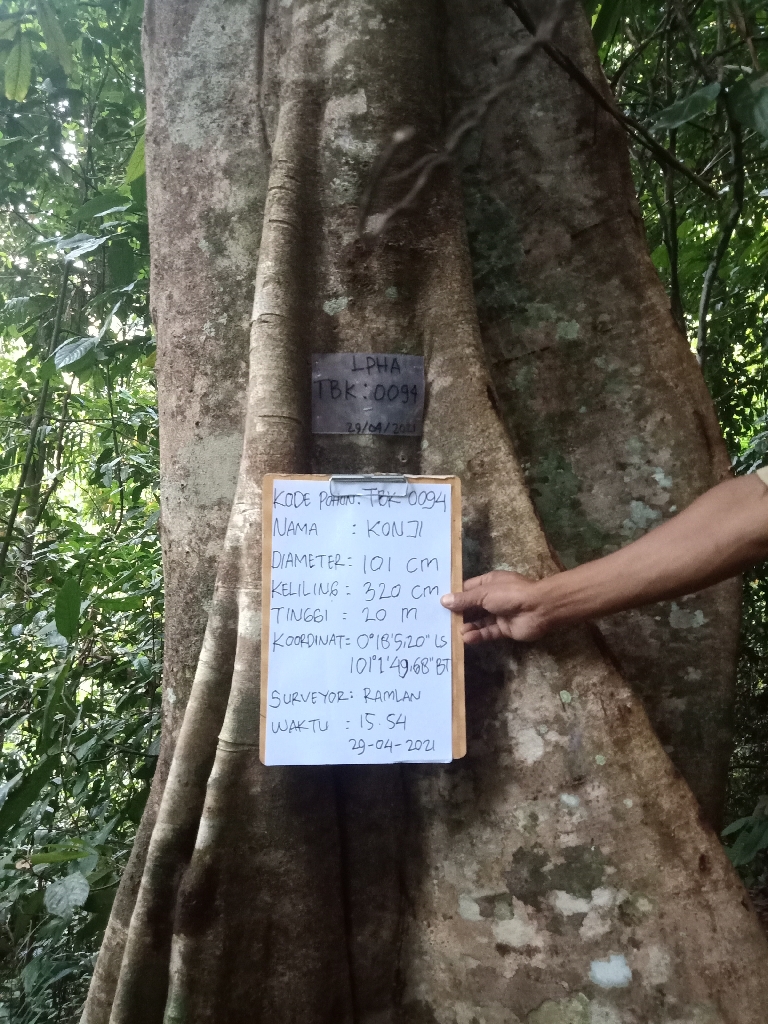 LPHA
TBK:0094
29/04/2021
KODE POHON: TBK 0094
NAMA : KONJI
DIAMETER= 101 CM
KELILING = 320 CM
TINGGI = 20 M
KOORDINAT= 0°18'5,20" LS
101°1'49,68" BT
SURVEYOR: RAMLAN
WAKTU : 15.54
29-04-2021